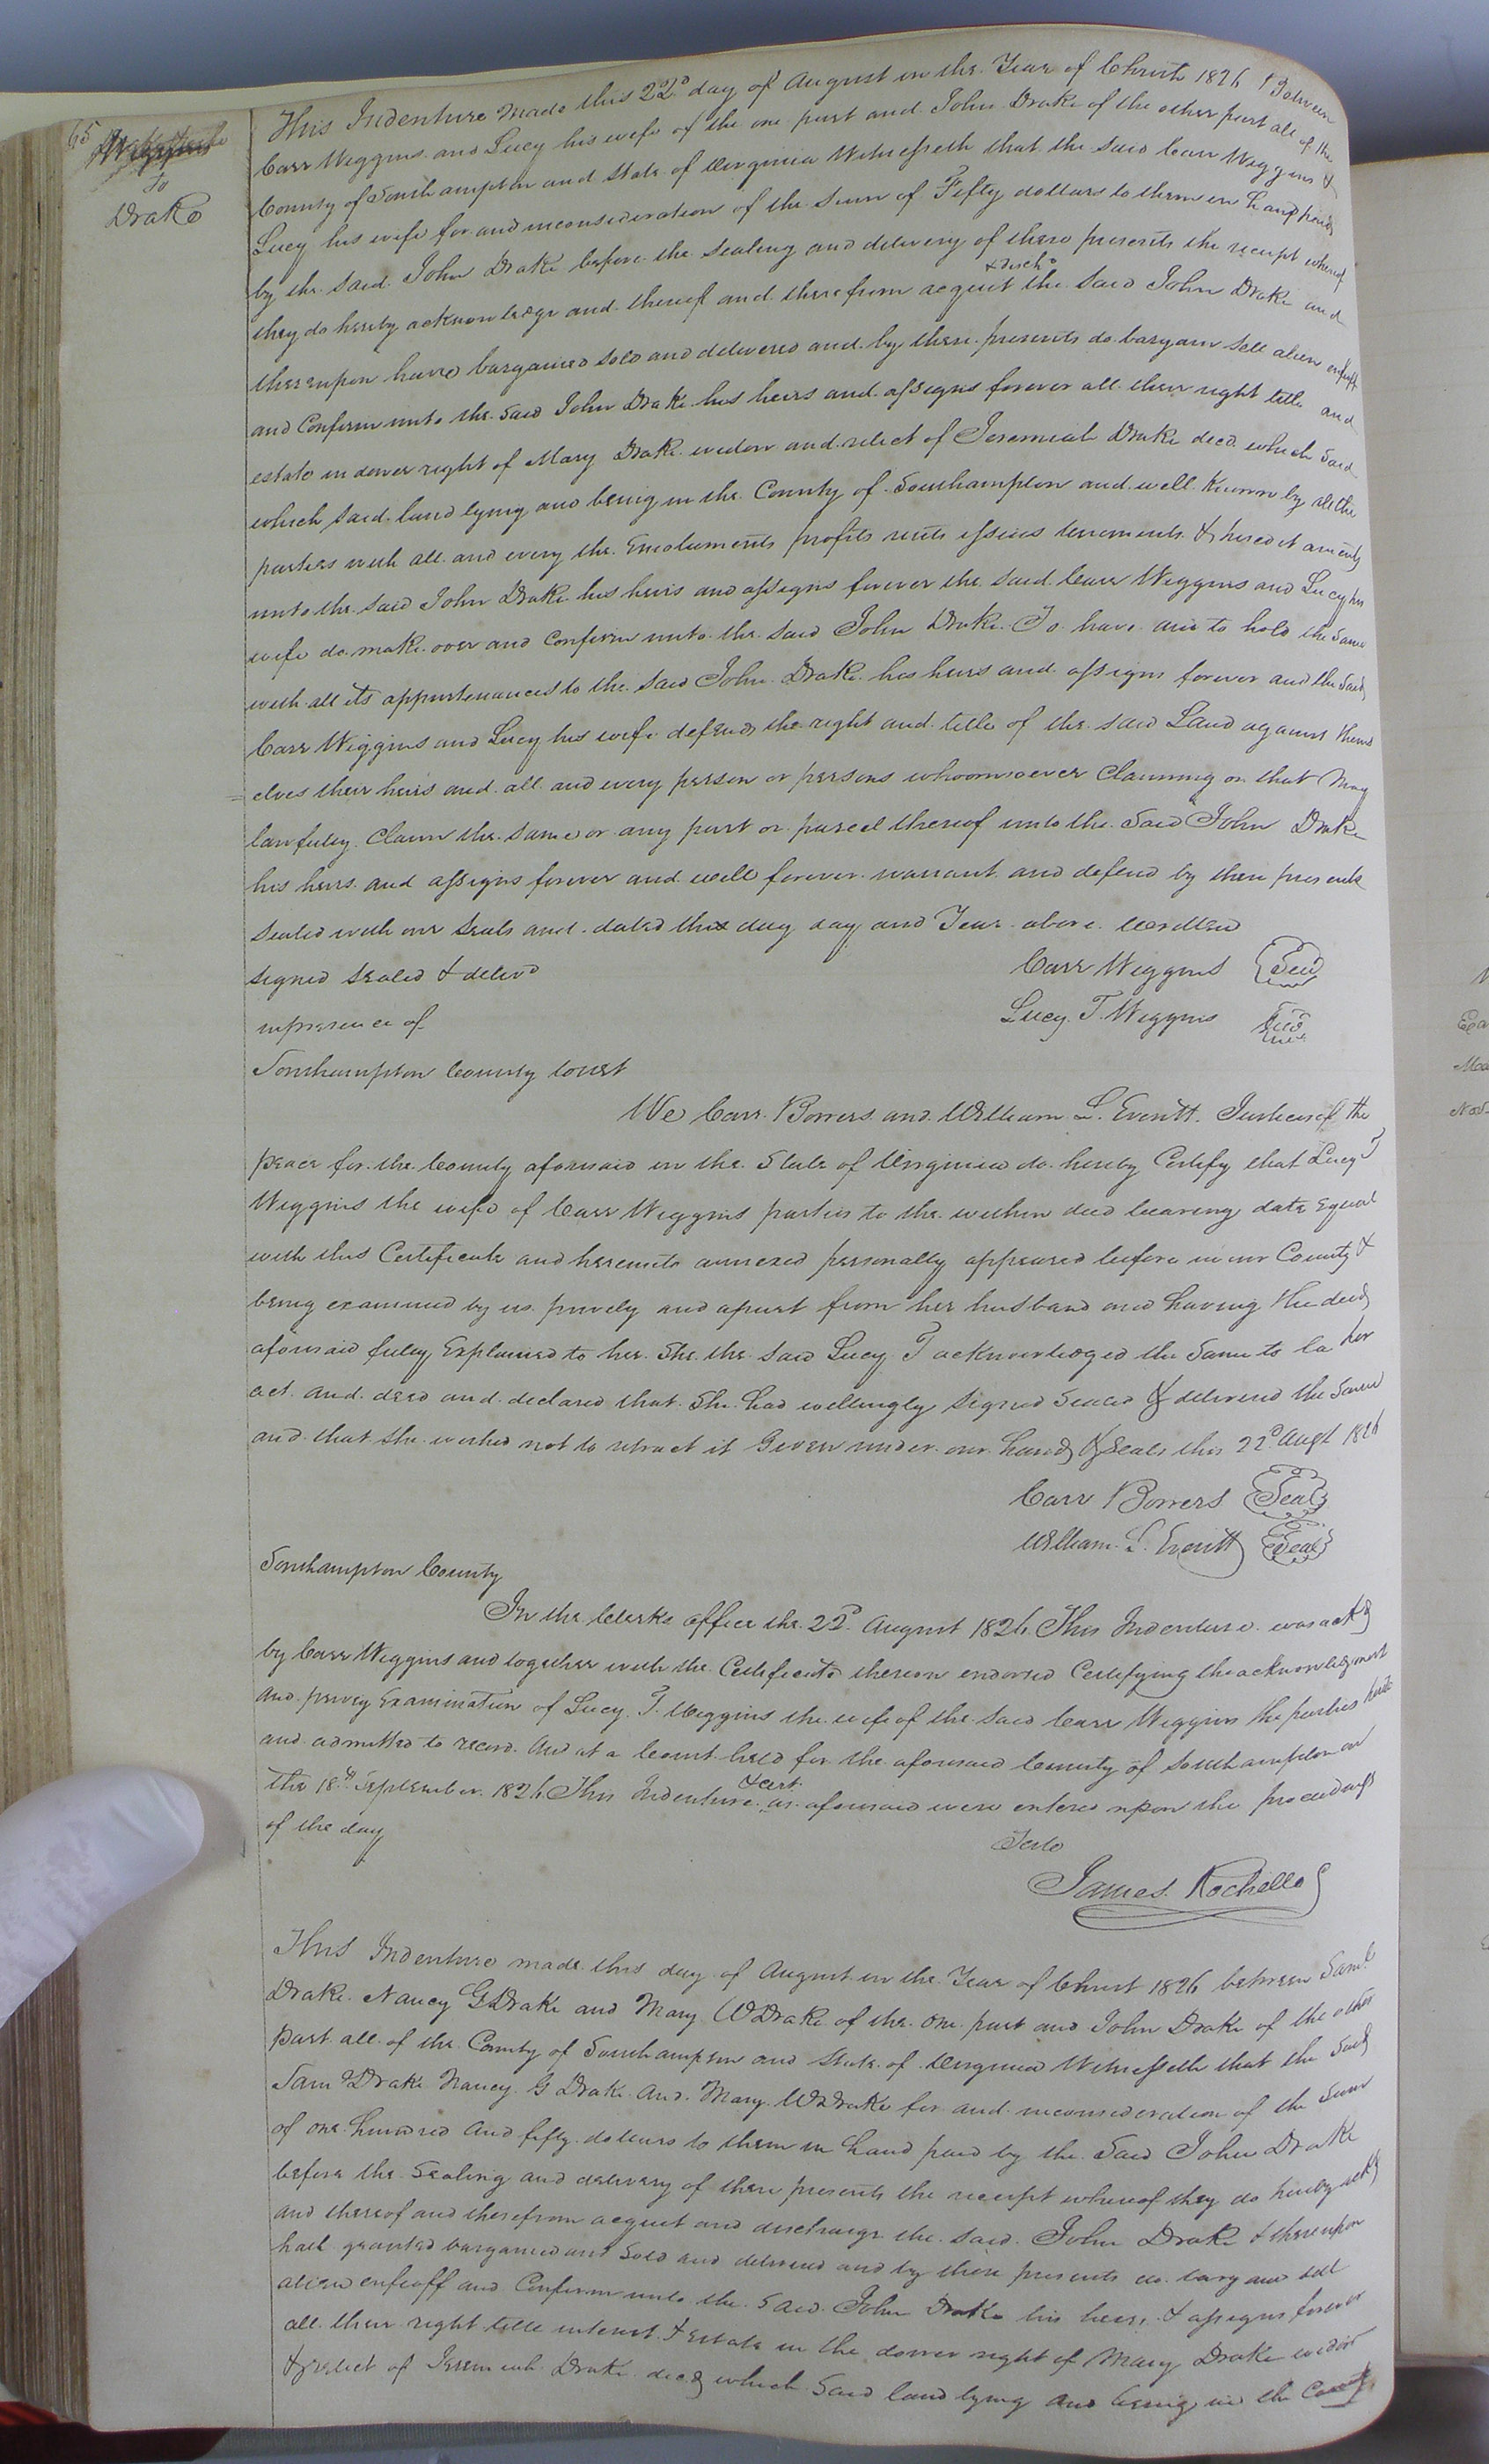 65
to
Drake
This Indenture Made this 22d day of August in the Year of Christ 1826 Between
Carr Wiggins and Lucy his wife of the one part and John Drake of the other part all of the
County of Southampton and State of Virginia Witnesseth that the said Carr Wiggins &
Lucy his wife for and inconsideration of the Sum of Fifty dollars to them in hand paid
by the said John Drake before the Sealing and delivery of these presents the receipt whereof
they do hereby acknowledge and thereof and therefrom acquit & disch the said John Drake and
thereupon have bargained sold and delivered and by these presents do bargain sell alien enfeoff
and Confirm unto the said John Drake his heirs and assigns forever all their right title and
estate in dower right of Mary Drake widow and relict of Jeremiah Drake decd which said
which said land lying and being in the County of Southampton and well Known by all the
parties with all and every the Emoluments profits rents issues tenements & hereditaments
unto the said John Drake his heirs and assigns forever the said Carr Wiggins and Lucy his
wife do make over and Confirm unto the said John Drake To have and to hold the same
with all its appurtenances to the said John Drake his heirs and assigns forever and the said
Carr Wiggins and Lucy his wife defend the right and title of the said Land against thems
=elves their heirs and all and every person or persons whoomsoever Claiming or that May
lawfuley Claim the same or any part or parcel thereof unto the said John Drake
his heirs and assigns forever and will forever warrant and defend by these presents
Sealed with our Seals and dated the day day and Year above written
signed sealed & delivd Carr Wiggins Seal
inpresence of Lucy T. Wiggins Seal
Southampton County Court
We Carr Bowers and William L. Everitt Justices of the
peace for the County aforesaid in the State of Virginia do hereby Certify that Lucy T
Wiggins the wife of Carr Wiggins parties to the within deed bearing date Equal
with this Certificate and hereunto annexed personally appeared before in our County &
being examined by us privily and apart from her husband and having the deed
aforesaid fuley Explained to her She the said Lucy T acknowledged the Same to be her
act and deed and declared that She had willingly signed Sealed & delivered the Same
and that she wished not to retract it Given under our hands & Seals this 22d Augt 1826
Carr Bowers Seal
William L. Everitt Seal
Southampton County
In the Clerks office the 22d August 1826 This Indenture was ackd
by Carr Wiggins and together with the Certificate thereon endorsed Certifying the acknowledgment
and privey Examination of Lucy T. Wiggins the wife of the said Carr Wiggins the parties hereto
and admitted to record. And at a Court held for the aforesaid County of Southampton on
the 18th September 1826 This Indenture & cert. as aforesaid were entered upon the proceedings
of the day
Teste
James Rochelle
This Indenture made this day of August in the Year of Christ 1826 between Saml
Drake Nancy G Drake and Mary W Drake of the one part and John Drake of the other
part all of the County of Southampton and State of Virginia Witnesseth that the said
Saml Drake Nancy G Drake and Mary W Drake for and inconsideration of the Sum
of one hundred and fifty dollars to them in hand paid by the Said John Drake
before the Sealing and delivery of these presents the receipt whereof they do hereby ackg
and thereof and therefrom acquit and discharge the said John Drake & thereupon
hath granted bargained and Sold and delivered and by these presents do bargain sell
alien enfeoff and Confirm unto the Said John Drake his heirs & assigns forever
all their right title interest & estate in the dower right of Mary Drake widow
& relict of Jeremiah Drake decd which Said land lying and being in the County